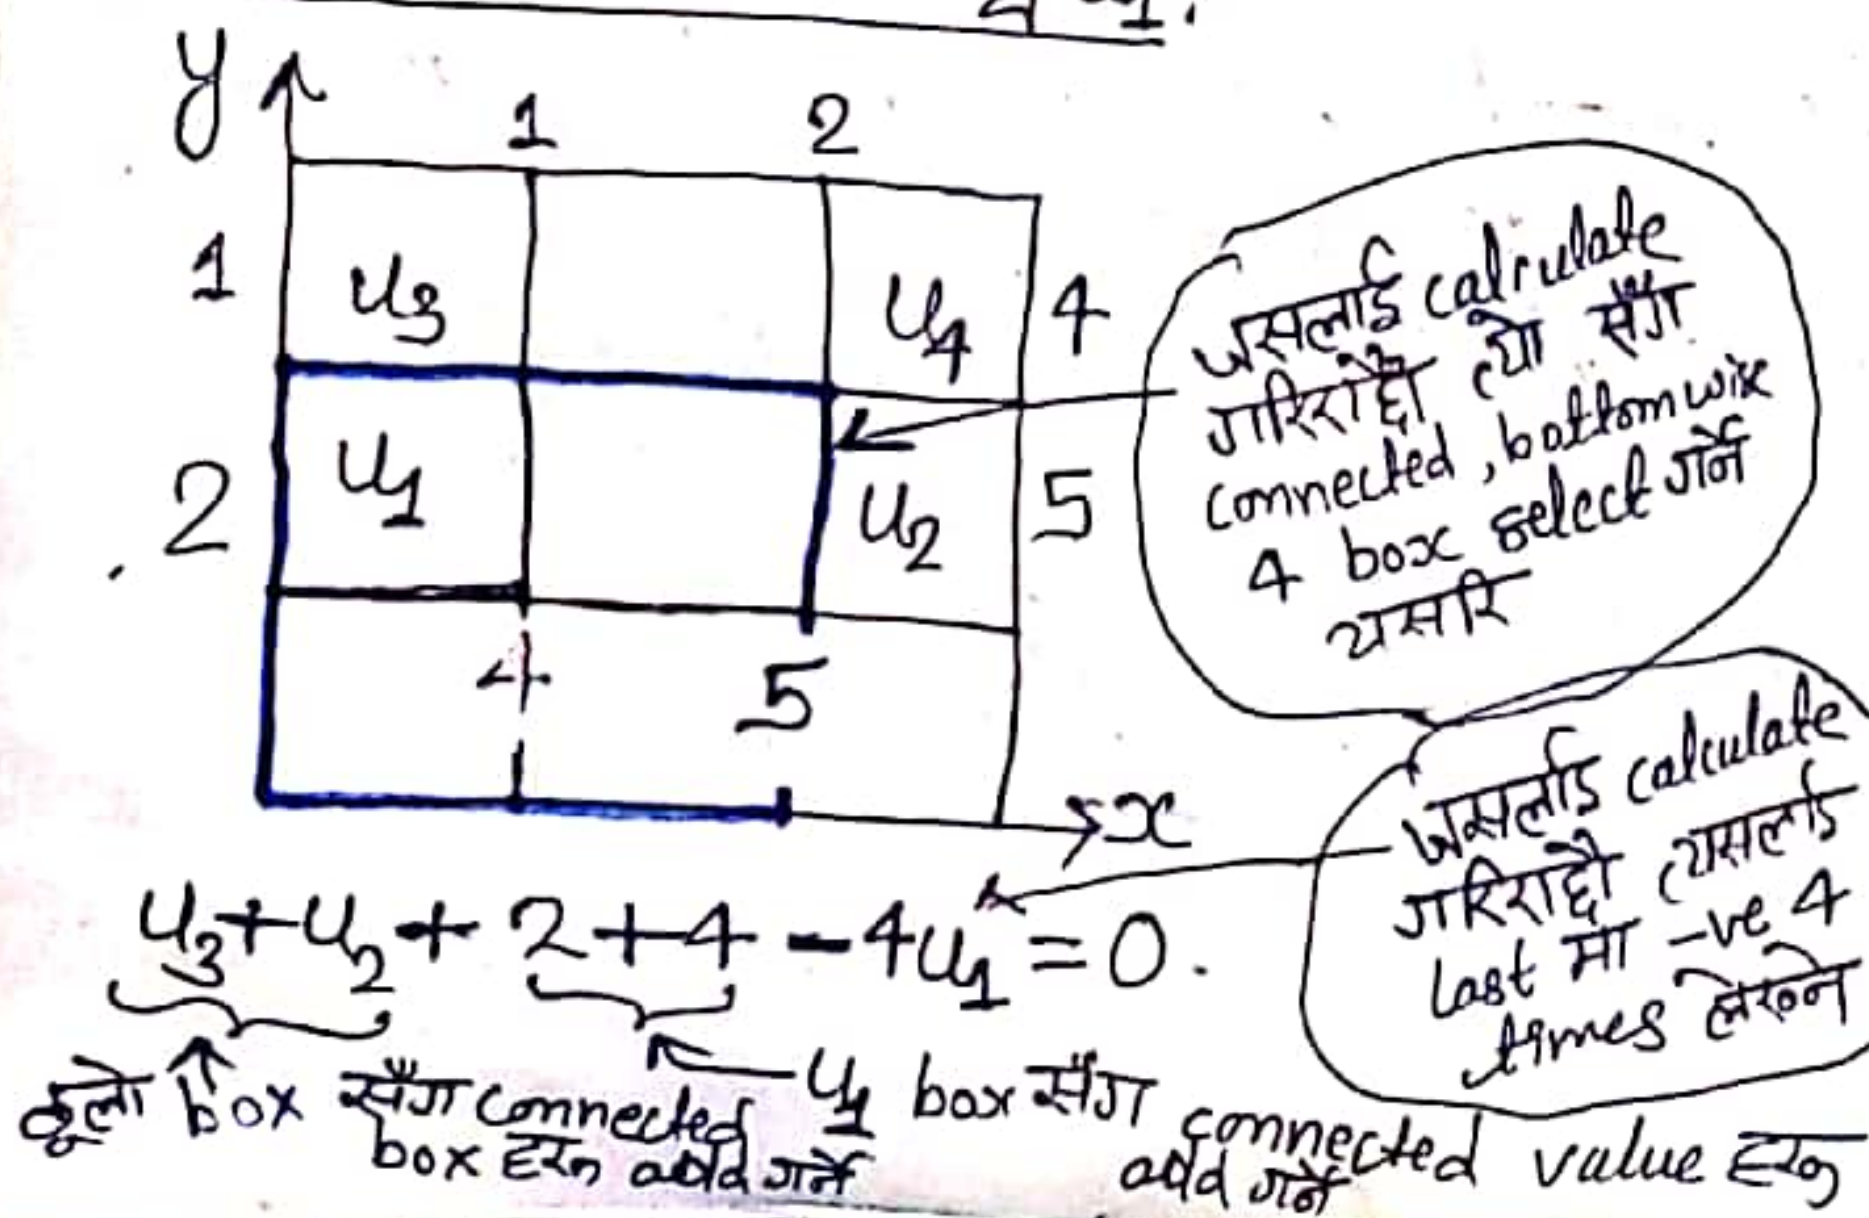 y
1 2
1 u₃ u₄ 4
2 u₁ u₂ 5
4 5
x
जसलाई calculate
गरिराछौ त्यो सँग
connected, bottom wise
4 box select गर्ने
यसरि
जसलाई calculate
गरिराछौ त्यसलाई
last मा -ve 4
times लेख्ने
u₃+u₂+2+4-4u₁=0.
ठूलो box सँग connected
box हरु add गर्ने
u₁ box सँग connected value हरु
add गर्ने